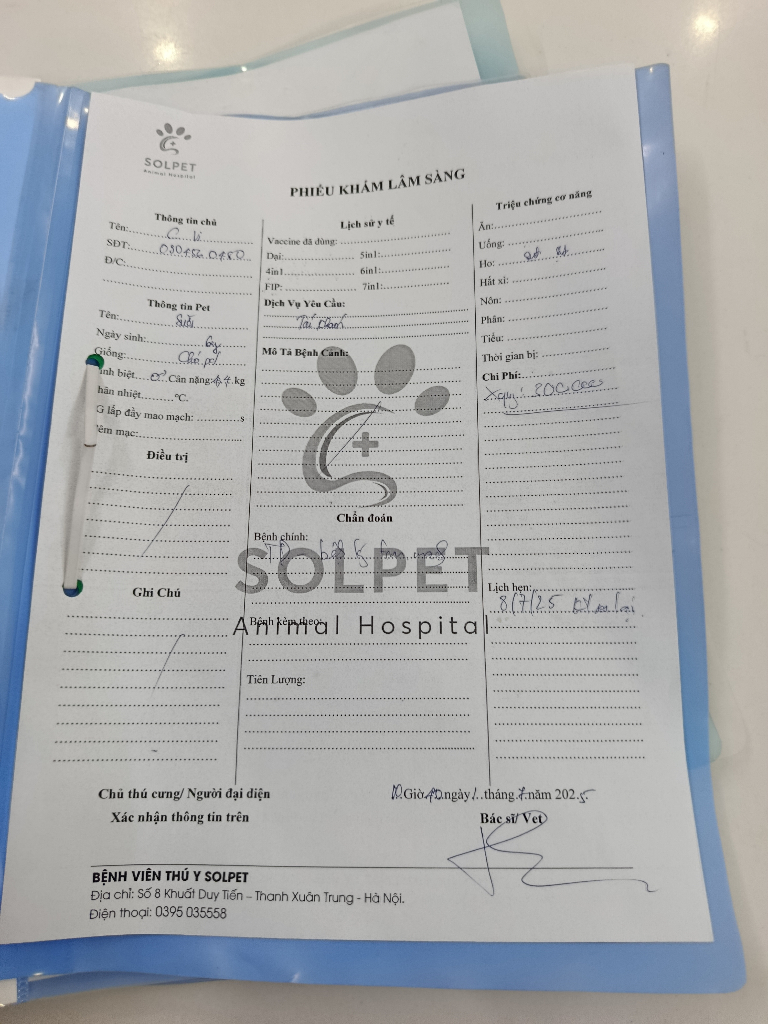 SOLPET
Animal Hospital
PHIẾU KHÁM LÂM SÀNG
Thông tin chủ
Tên:
SĐT:
Đ/C:
Thông tin Pet
Tên:
Ngày sinh: 6y
Giống: Chó
inh biệt ♂ Cân nặng: kg
hân nhiệt °C.
G lấp đầy mao mạch: s
êm mạc:
Điều trị
Ghi Chú
Lịch sử y tế
Vaccine đã dùng:
Dại: 5in1:
4in1 6in1:
FIP: 7in1:
Dịch Vụ Yêu Cầu:
Tái khám
Mô Tả Bệnh Cảnh:
Chẩn đoán
Bệnh chính:
SOLPET
Animal Hospital
Bệnh kèm theo:
Tiên Lượng:
Triệu chứng cơ năng
Ăn:
Uống:
Ho:
Hắt xì:
Nôn:
Phân:
Tiểu:
Thời gian bị:
Chi Phí:
Lịch hẹn:
8/7/25
Chủ thú cưng/ Người đại diện
Xác nhận thông tin trên
Giờ ngày 1 tháng 7 năm 2025
Bác sĩ/ Vet
BỆNH VIÊN THÚ Y SOLPET
Địa chỉ: Số 8 Khuất Duy Tiến – Thanh Xuân Trung - Hà Nội.
Điện thoại: 0395 035558